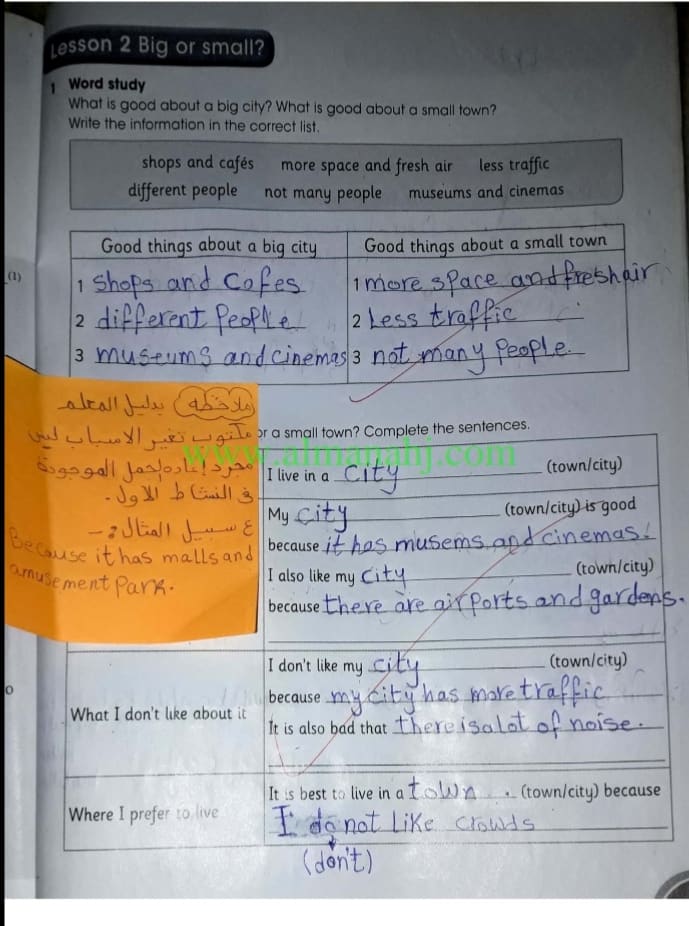 Lesson 2 Big or small?
1 Word study
What is good about a big city? What is good about a small town?
Write the information in the correct list.
shops and cafés more space and fresh air less traffic
different people not many people museums and cinemas
Good things about a big city Good things about a small town
(1)
1 Shops and Cafes 1 more space and fresh air
2 different People 2 Less traffic
3 museums and cinemas 3 not many People.
ملاحظة بدليل المعلم
مكتوب تغير الاسباب ليس
مجرد إعادة لجمل الموجودة
في النشاط الاول.
ع سبيل المثال :-
Because it has malls and
amusement Park.
or a small town? Complete the sentences.
www.almanahj.com
I live in a City (town/city)
My City (town/city) is good
because it has musems and cinemas.
I also like my City (town/city)
because there are airports and gardens.
What I don't like about it
I don't like my city (town/city)
because my city has more traffic
It is also bad that there is a lot of noise.
Where I prefer to live
It is best to live in a town . (town/city) because
I do not Like crowds
(don't)